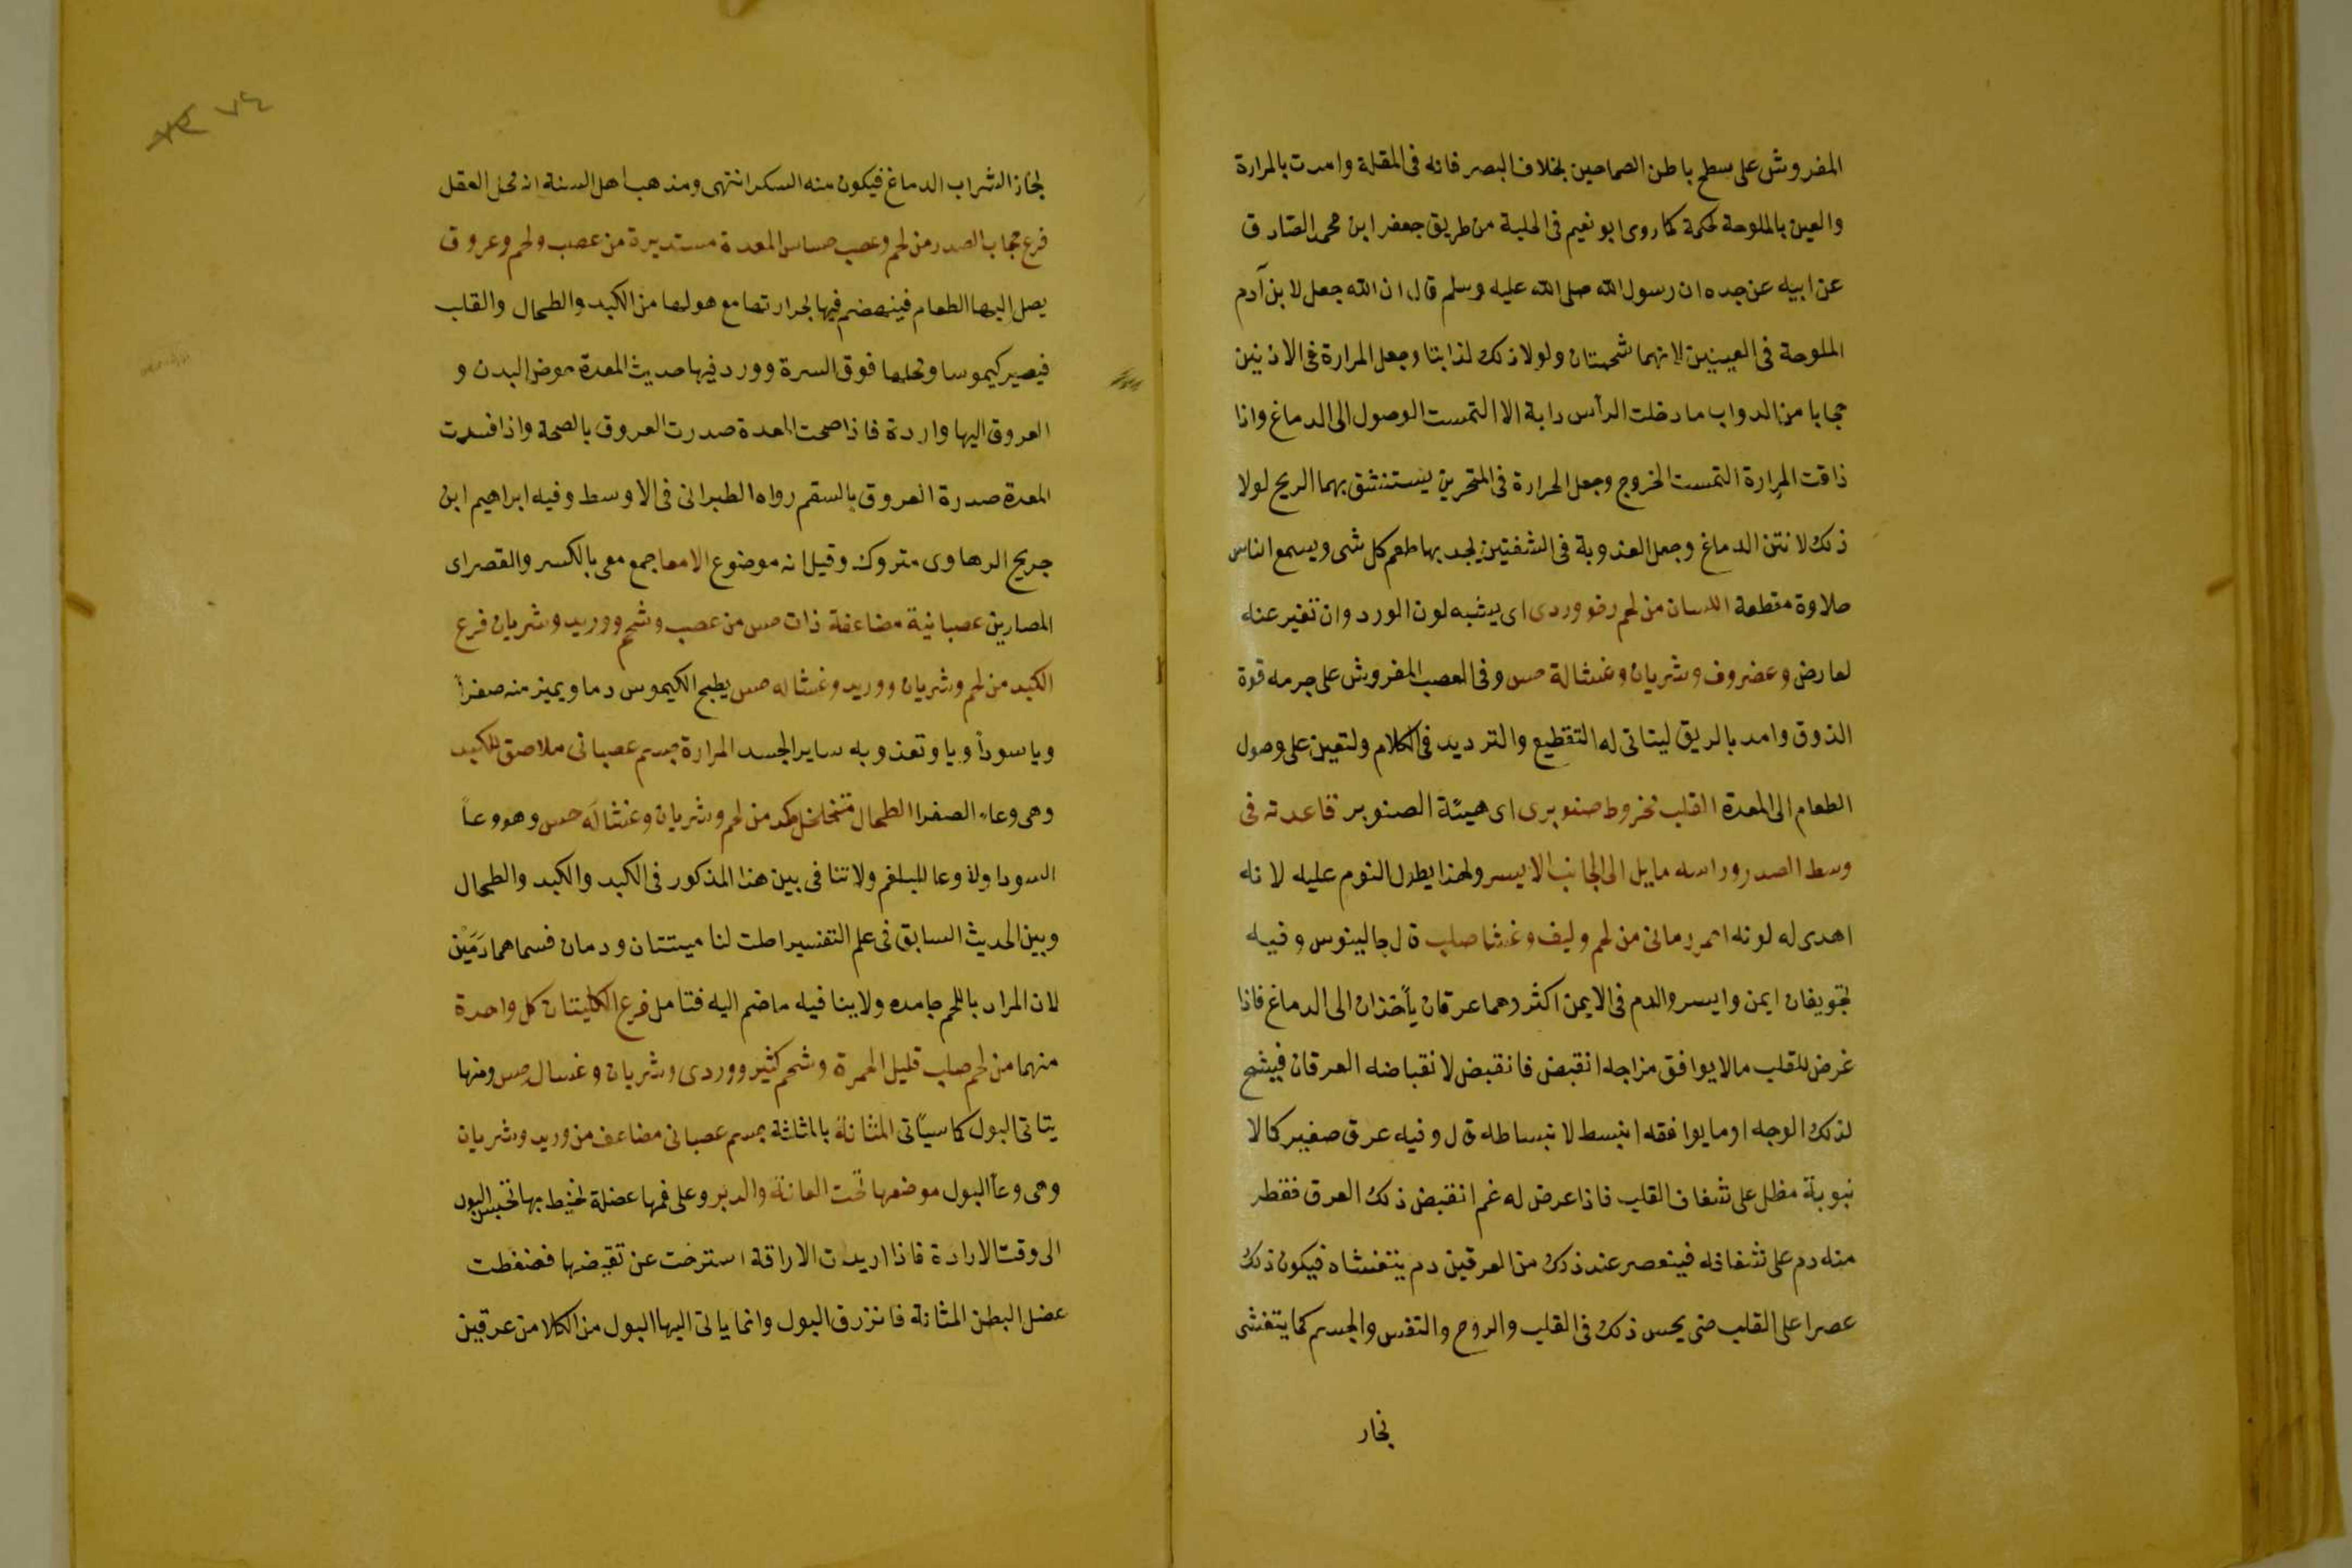 المفروش على سطح باطن الصماحين بخلاف البصر فانه فى المقلة وامدت بالمرارة
والعين بالملوحة لحكمة كما روى ابو نعيم فى الحلية من طريق جعفر ابن محمد الصادق
عن ابيه عن جده ان رسول الله صلى الله عليه وسلم قال ان الله جعل لابن آدم
الملوحة فى العينين لانهما شحمتان ولولا ذلك لذابتا وجعل المرارة فى الاذنين
حجابا من الدواب ما دخلت الرأس دابة الا التمست الوصول الى الدماغ واذا
ذاقت المرارة التمست الخروج وجعل الحرارة فى المنخرين يستنشق بهما الريح لولا
ذلك لانتن الدماغ وجعل العذوبة فى الشفتين يجد بها طعم كل شى ويسمع الناس
حلاوة منطقه اللسان من لحم رخو وردى اى يشبه لون الورد وان تغير عنه
لعارض وغضروف وشريان وغشا له حس وفى العصب المفروش على جرمه قوة
الذوق وامد بالريق ليتاتى له التقطيع والترديد فى الكلام ولتعين على وصول
الطعام الى المعدة القلب مخروط صنوبرى اى هيئة الصنوبر قاعدته فى
وسط الصدر وراسه مايل الى الجانب الايسر ولهذا يطول النوم عليه لانه
اهدى له لونه احمر رمانى من لحم وليف وغشا صلب قال جالينوس وفيه
تجويفان ايمن وايسر والدم فى الايمن اكثر وهما عرقان يأخذان الى الدماغ فاذا
عرض للقلب مالا يوافق مزاجه انقبض فانقبض لانقباضه العرقان فيشنج
لذلك الوجه او ما يوافقه انبسط لانبساطه قال وفيه عرق صغير كالا
نبوبة مطل على شغاف القلب فاذا عرض له غم انقبض ذلك العرق فقطر
منه دم على شغافه فينعصر عند ذلك من العرقين دم يتغشاه فيكون ذلك
عصرا على القلب حتى يحس ذلك فى القلب والروح والنفس والجسم كما يتغشى
بخار
٧٤
بخار الشراب الدماغ فيكون منه السكر انتهى ومذهب اهل السنة انه محل العقل
فرع حجاب الصدر من لحم وعصب حساس المعدة مستديرة من عصب ولحم وعروق
يصل اليها الطعام فينهضم فيها بحرارتها مع ما حولها من الكبد والطحال والقلب
فيصير كيموسا ومحلها فوق السرة وورد فيها حديث المعدة حوض البدن و
العروق اليها واردة فاذا صحت المعدة صدرت العروق بالصحة واذا فسدت
المعدة صدرة العروق بالسقم رواه الطبرانى فى الاوسط وفيه ابراهيم ابن
جريج الرهاوى متروك وقيل انه موضوع الامعا جمع معى بالكسر والقصر اى
المصارين عصبانية مضاعفة ذات حس من عصب وشحم ووريد وشريان فرع
الكبد من لحم وشريان ووريد وغشا له حس يطبخ الكيموس دما ويميز منه صفرأ
ويا سودأ ويا وتغذو به ساير الجسد المرارة جسم عصبانى ملاصق للكبد
وهى وعاء الصفرا الطحال متخلخل كمد من لحم وشريان وغشا له حس وهو وعأ
السودا ولا وعا للبلغم ولا تنافى بين هذا المذكور فى الكبد والكبد والطحال
وبين الحديث السابق فى علم التفسير احلت لنا ميتتان ودمان فسماهما دَمَيْن
لان المراد باللحم جامده ولا ينافيه ما ضم اليه فتامل فرع الكليتان كل واحدة
منهما من لحم صلب قليل الحمرة وشحم كثير ووردى وشريان وغسال حس ومنها
يتاتى البول كما سيأتى المثانة بالمثلثة جسم عصبانى مضاعف من وريد وشريان
وهى وعأ البول موضعها تحت العانة والدبر وعلى فمها عضلة تحيط بها تحبس البول
الى وقت الارادة فاذا اريدت الاراقة استرخت عن تقبضها فضغطت
عضل البطن المثانة فانزرق البول وانما ياتى اليها البول من الكلا من عرقين